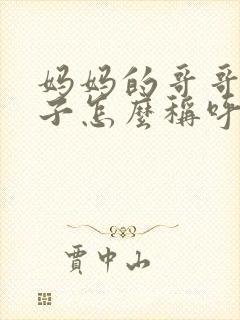 妈妈的哥哥
子怎麼稱呼
賈中山